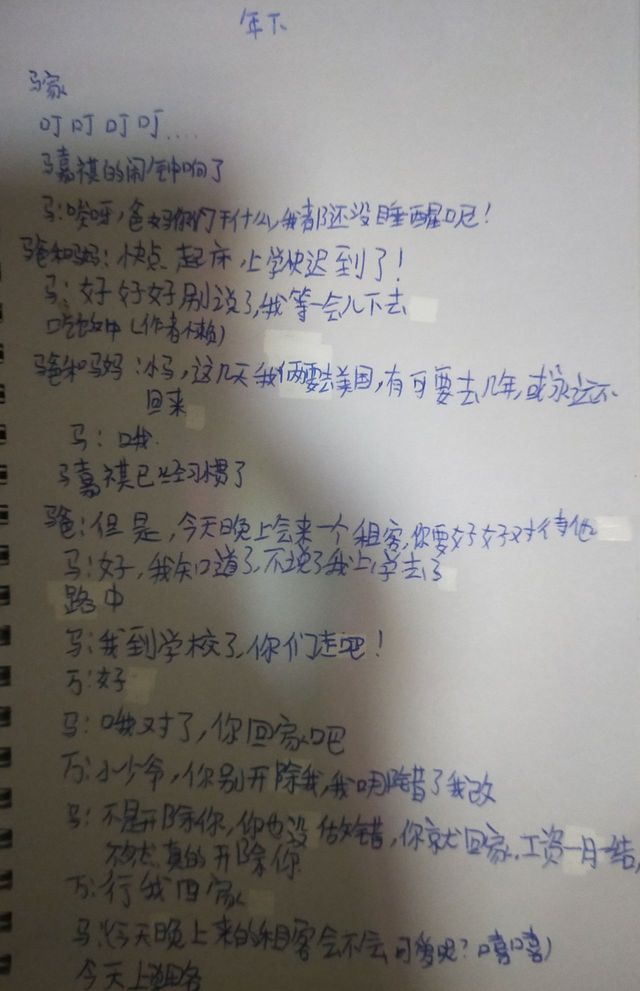 年下
马家
叮叮叮叮....
马嘉祺的闹钟响了
马:哎呀,爸妈你们干什么,我都还没睡醒呢!
马爸和马妈:快点起床,上学快迟到了!
马:好好好别说了,我等一会儿下去
吃饭中(作者懒)
马爸和马妈:小马,这几天我俩要去美国,有可要去几年,或永远不
回来
马:哦.
马嘉祺已经习惯了
马爸:但是,今天晚上会来一个租客,你要好好对待他
马:好,我知道了,不说了我上学去了
路中
马:我到学校了,你们走吧!
万:好
马:哦对了,你回家吧
万:小少爷,你别开除我,我哪错了我改
马:不是开除你,你也没做错,你就回家.工资一月一结,
不然真的开除你
万:行我回家
马:(今天晚上来的租客会不会可爱呢?嘻嘻)
今天上